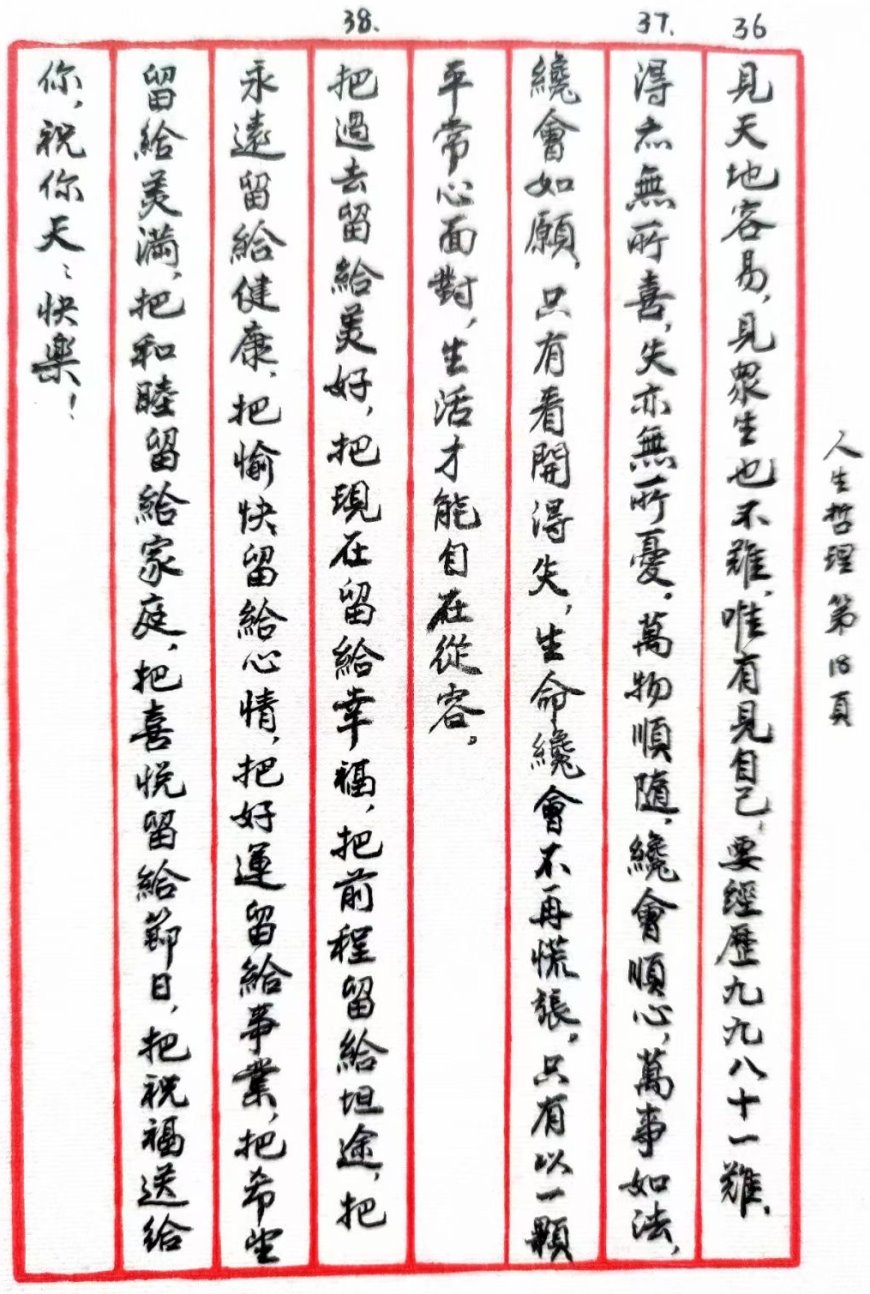 人生哲理第18頁
36
見天地容易,見眾生也不難,唯有見自己,要經歷九九八十一難.
37.
得亦無所喜,失亦無所憂。萬物順隨,纔會順心,萬事如法,
纔會如願,只有看開得失,生命纔會不再慌張。只有以一顆
平常心面對,生活才能自在從容。
38.
把過去留給美好,把現在留給幸福,把前程留給坦途,把
永遠留給健康,把愉快留給心情,把好運留給事業,把希望
留給美滿,把和睦留給家庭,把喜悅留給節日,把祝福送給
你,祝你天々快樂!